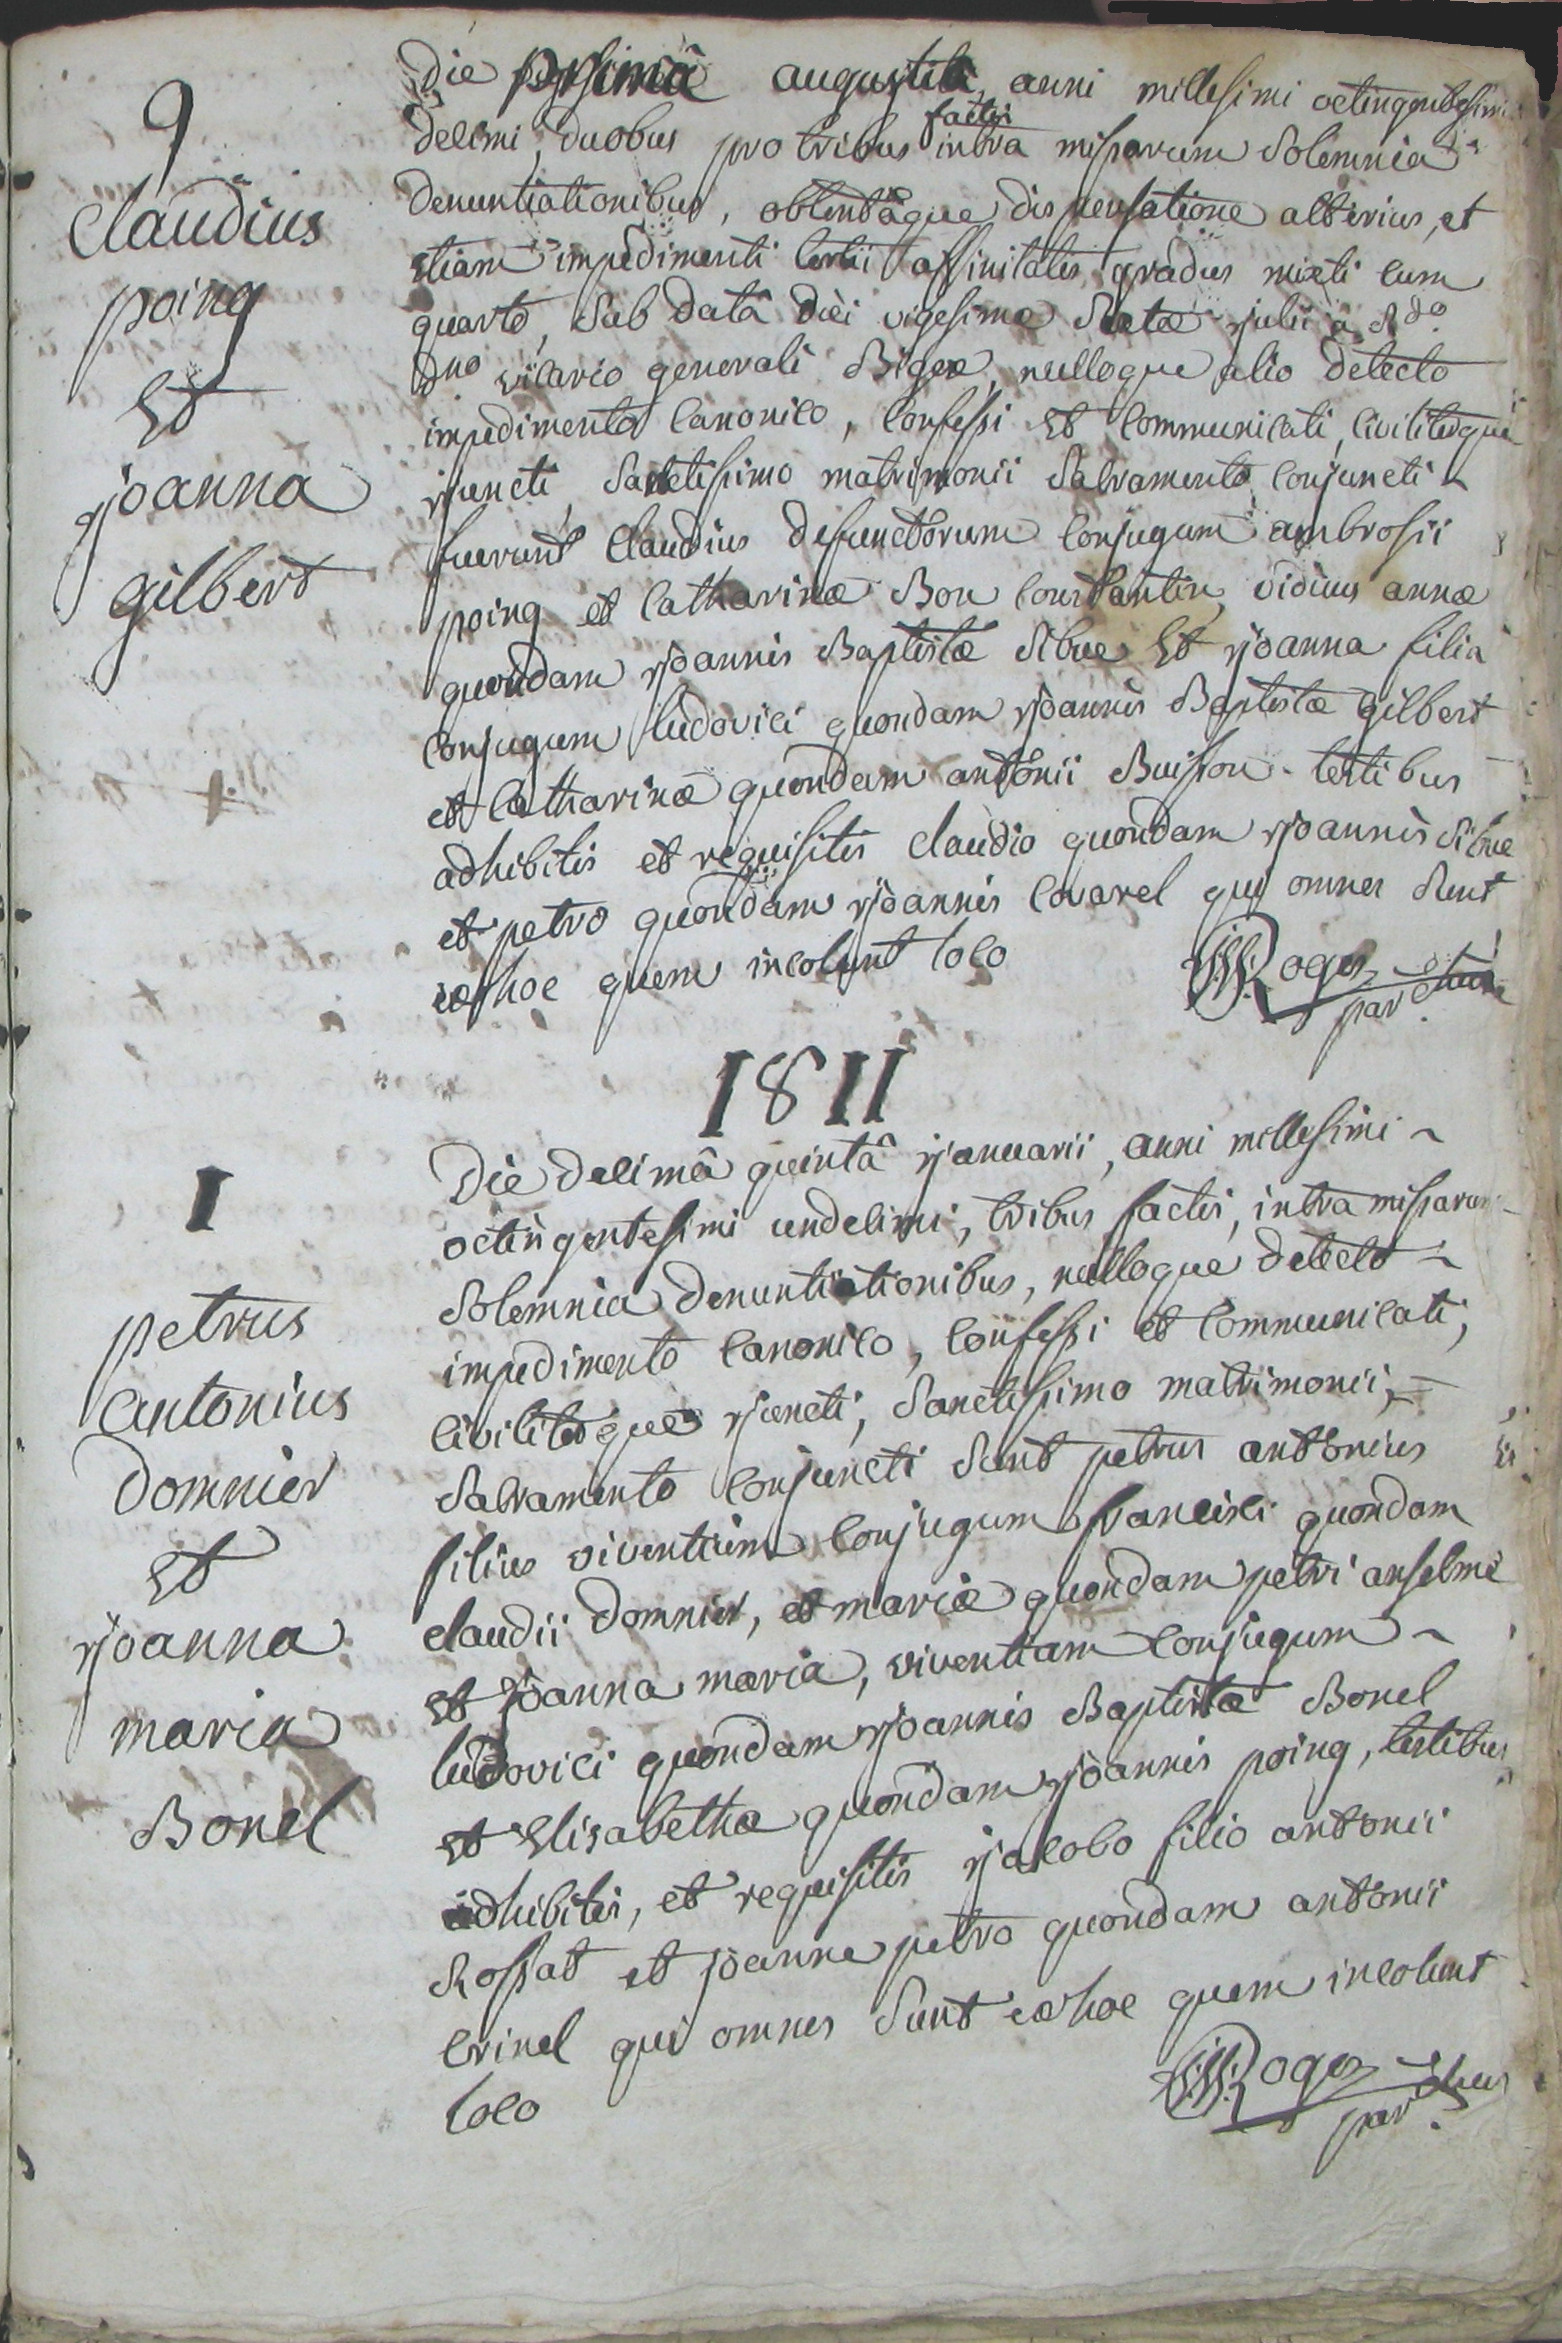 9
Claudius
poing
Et
joanna
gilbert
Die primâ augusti, anni millesimi octingentesimi
decimi, duobus pro tribus factis intra missarum Solemnia
Denuntiationibus, obtentâque dispensatione alterius, et
etiam impedimenti tertii affinitatis gradus mixti cum
quarto, Sub datâ diei vigesimæ Sextæ julii a Rdo
Dno vicario generali Bigex, nulloque alio detecto
impedimento Canonico, Confessi Et Communicati, Civiliterque
juncti Sanctissimo matrimonii Sacramento, conjuncti
fuerunt Claudius defunctorum Conjugum ambrosii
poing et Catharinæ Bon Constantin, viduus annæ
quondam joannis Baptistæ Sibue Et joanna filia
Conjugum ludovici quondam joannis Baptistæ gilbert
et Catharinæ quondam antonii Buisson. testibus
adhibitis et requisitis Claudio quondam joannis Sibue
et petro quondam joannis Covarel qui omnes Sunt
ex hoc quem incolunt loco
Roger
par
1811
I
petrus
Antonius
Domnier
Et
joanna
maria
Bonel
Die decimâ quintâ januarii, anni millesimi
octingentesimi undecimi, tribus factis, intra missarum
Solemnia Denuntiationibus, nulloque detecto
impedimento Canonico, Confessi et Communicati,
Civiliterque juncti, Sanctissimo matrimonii,
Sacramento Conjuncti Sunt petrus antonius
filius viventium Conjugum francisci quondam
Claudii Domnier, et mariæ quondam petri anselme
Et joanna maria, viventiam Conjugum
ludovici quondam joannis Baptistæ Bonel
Et Elisabethæ quondam joannis poing, testibus
adhibitis, et requisitis jacobo filio antonii
Rossat et joanne petro quondam antonii
Crinel qui omnes Sunt ex hoc quem incolunt
loco
Roger
par